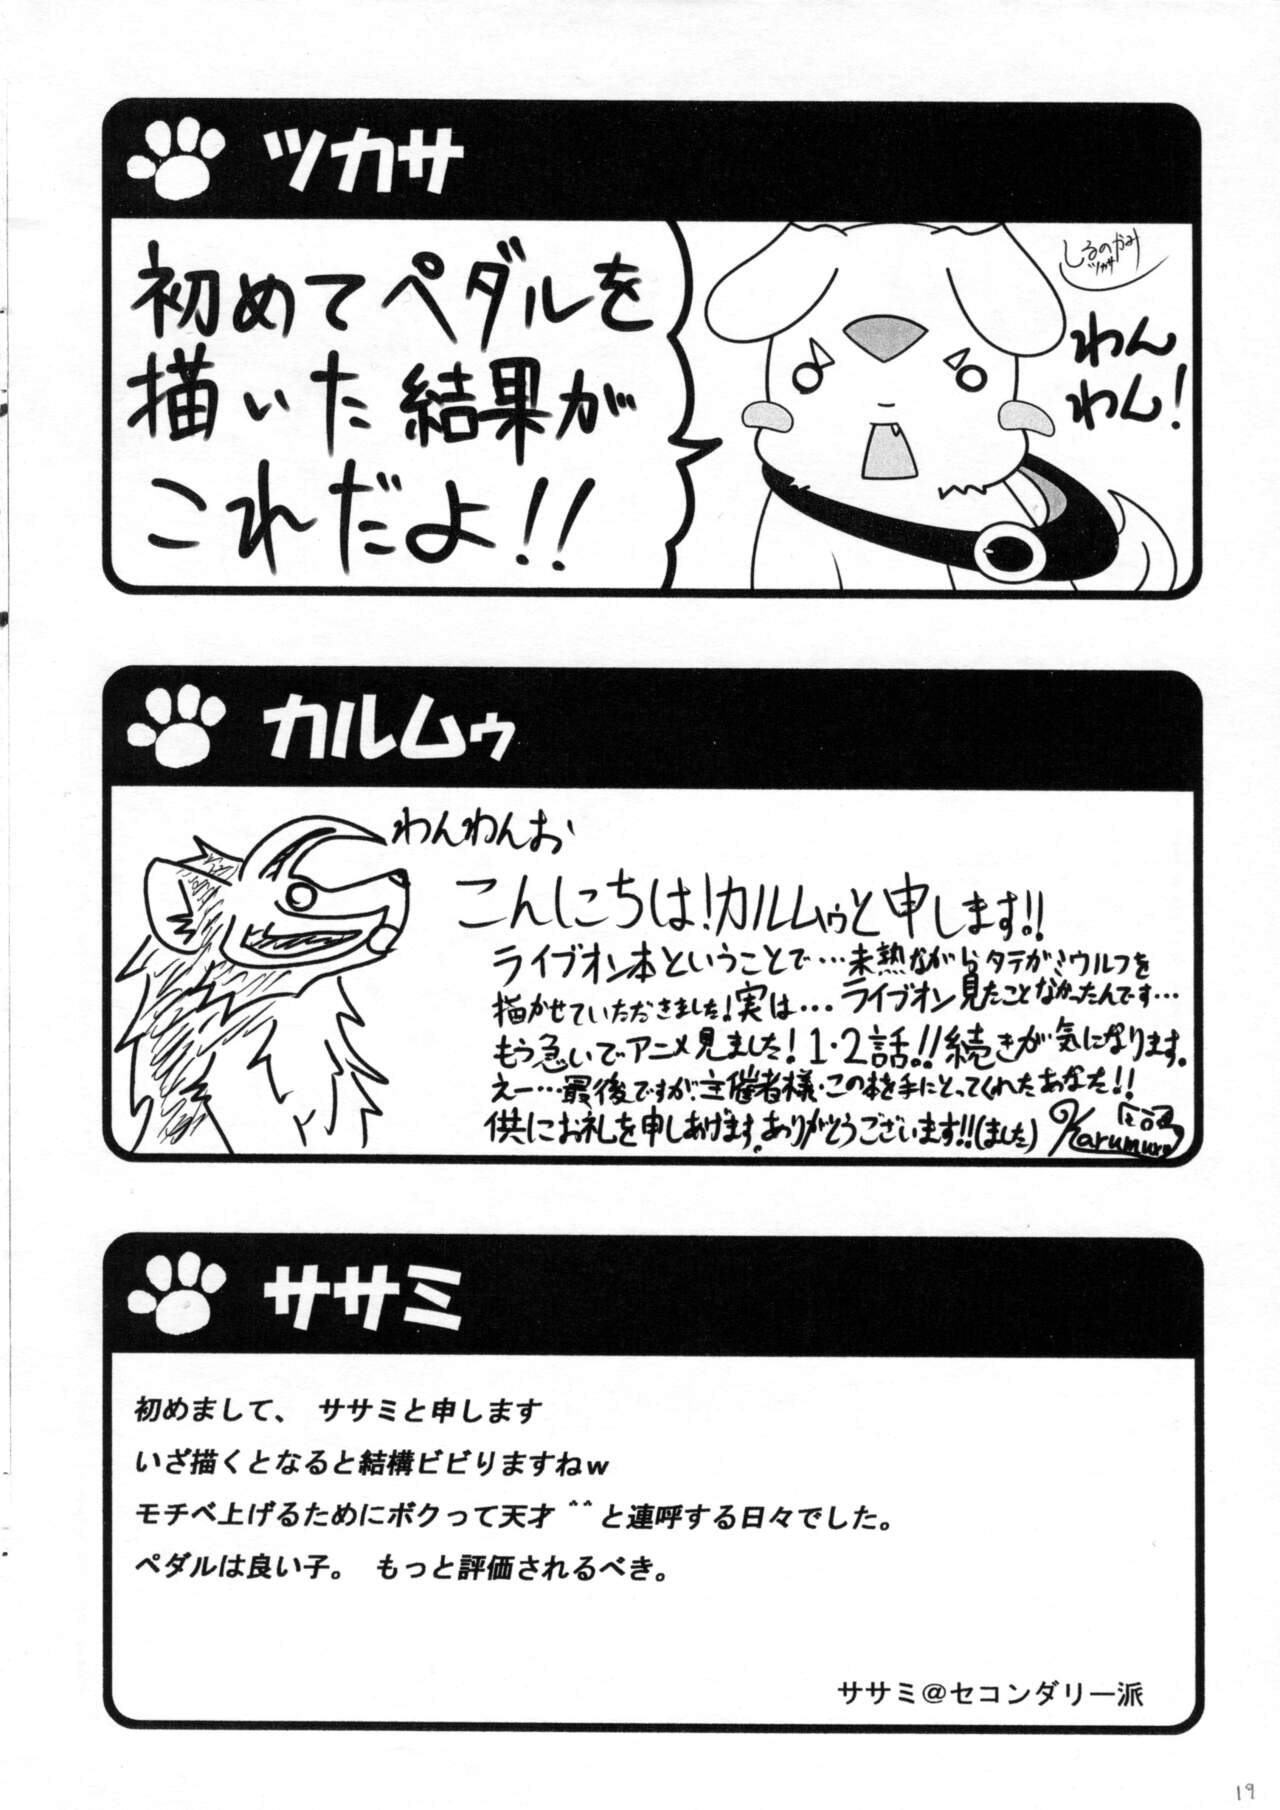 ツカサ
初めてペダルを
描いた結果が
これだよ!!
しるのかみ
ツカサ
わん
わん!
カルムゥ
わんわんお
こんにちは!カルムゥと申します!!
ライブオン本ということで…未熟ながらタテガミウルフを
描かせていただきました!実は…ライブオン見たことなかったんです…
もう急いでアニメ見ました!1・2話!!続きが気になります。
えー…最後ですが、主催者様・この本を手にとってくれたあなた!!
供にお礼を申しあげます。ありがとうございます!!(ました)
Karumuru
ササミ
初めまして、 ササミと申します
いざ描くとなると結構ビビりますねw
モチベ上げるためにボクって天才^^と連呼する日々でした。
ペダルは良い子。 もっと評価されるべき。
ササミ@セコンダリー派
19